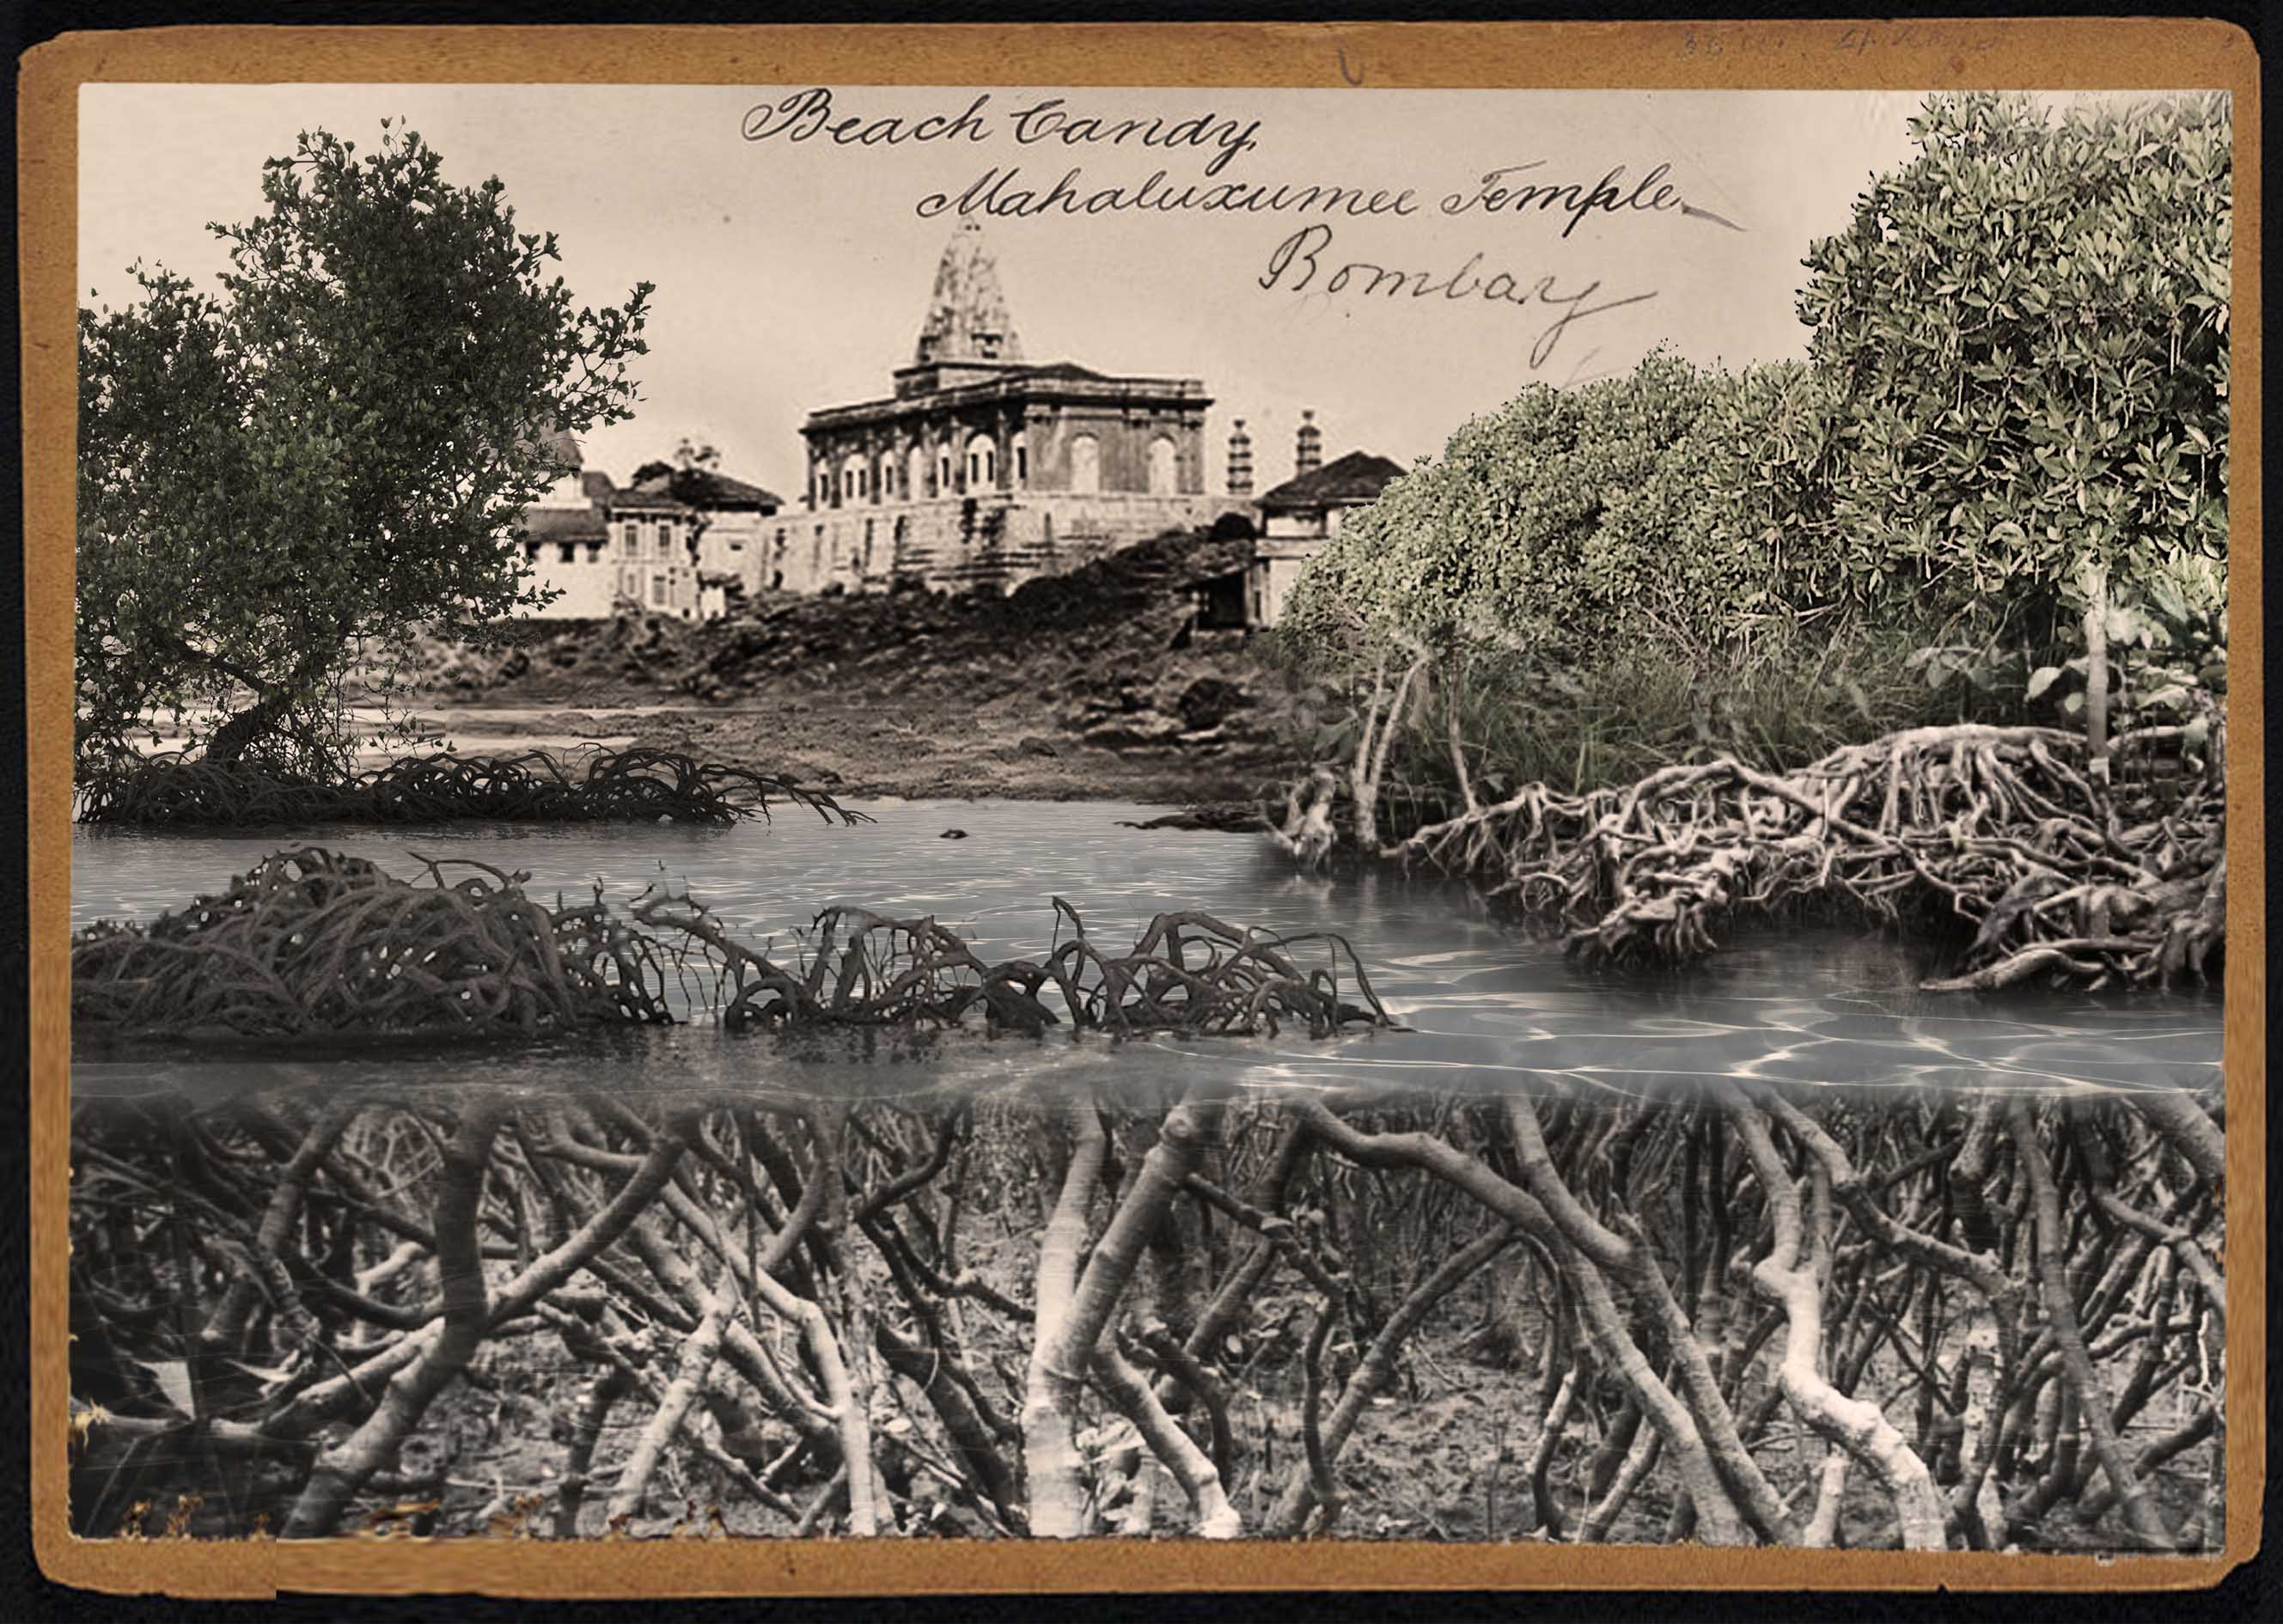 Beach Candy,
Mahaluxumee Temple
Bombay